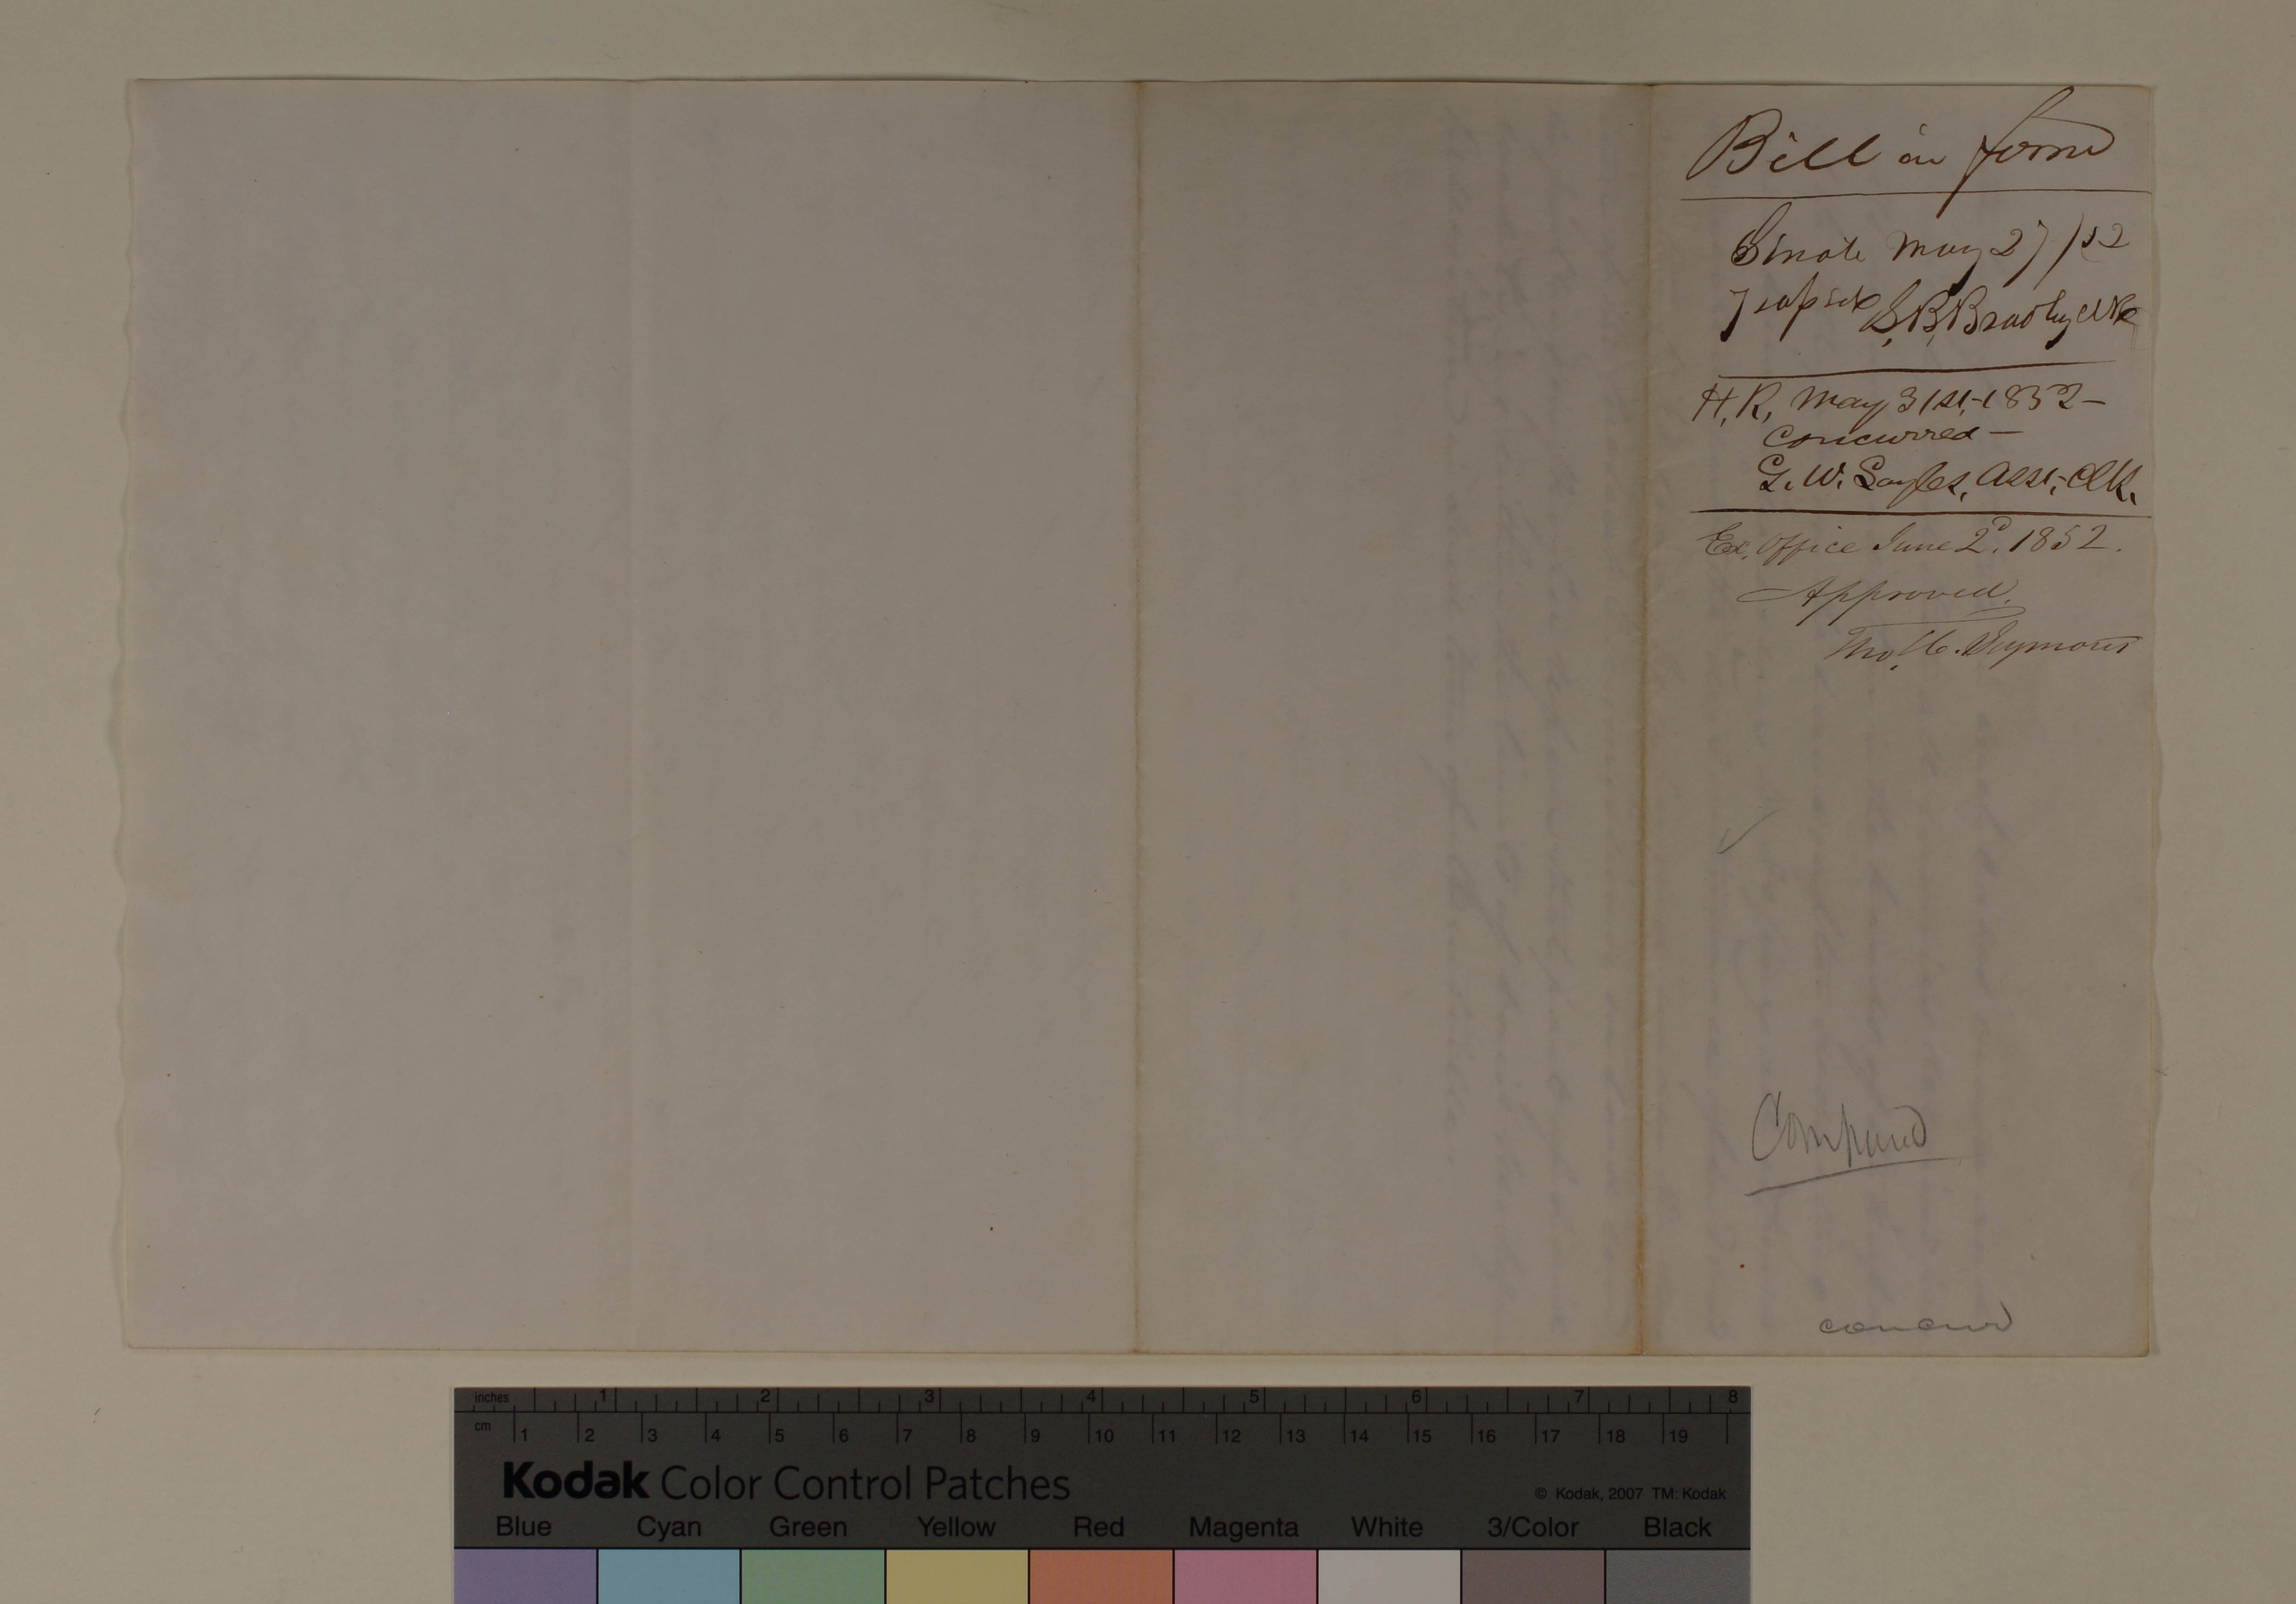 Bill in form
Senate May 27/52
passed S. B. Bradley Clk
H. R, May 31st, 1852—
Concurred—
G. W. Sayles, Asst, Clk.
Ex. Office June 2d. 1852.
Approved.
Tho, H. Seymour
Compared
concurd
inches 1 2 3 4 5 6 7 8
cm 1 2 3 4 5 6 7 8 9 10 11 12 13 14 15 16 17 18 19
Kodak Color Control Patches
© Kodak, 2007 TM: Kodak
Blue Cyan Green Yellow Red Magenta White 3/Color Black